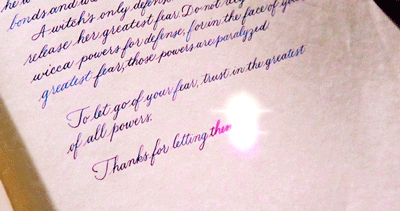 bonds and
A witch's only defense
release her greatest fear. Do not
wicca powers for defense, for in the face of your
greatest fear, those powers are paralyzed
To let go of your fear, trust in the greatest
of all powers.
Thanks for letting them